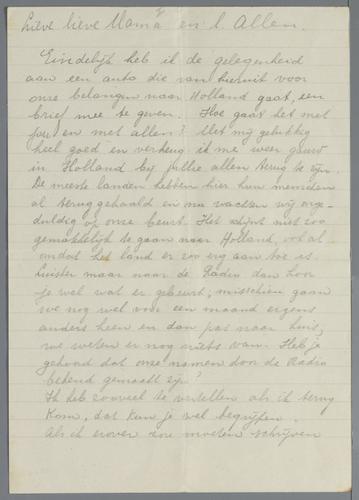 Lieve lieve Mama en l. Allen.
Eindelijk heb ik de gelegenheid
aan een auto die van hieruit voor
onze belangen naar Holland gaat, een
brief mee te geven. Hoe gaat het met
jou en met allen? Met mij gelukkig
heel goed en verheug ik me weer gauw
in Holland bij jullie allen terug te zijn.
De meeste landen hebben hier hun menschen
al teruggehaald en nu wachten wij onge-
duldig op onze beurt. Het schijnt niet zoo
gemakkelijk te gaan naar Holland, vooral
omdat het land er zoo erg aan toe is.
Luister maar naar de Radio dan hoor
je wel wat er gebeurt, misschien gaan
we nog wel voor een maand ergens
anders heen en dan pas naar huis,
we weten er nog niets van. Heb je
gehoord dat onze namen door de Radio
bekend gemaakt zijn?
Ik heb zooveel te vertellen als ik terug
kom, dat kun je wel begrijpen.
Als ik erover zou moeten schrijven